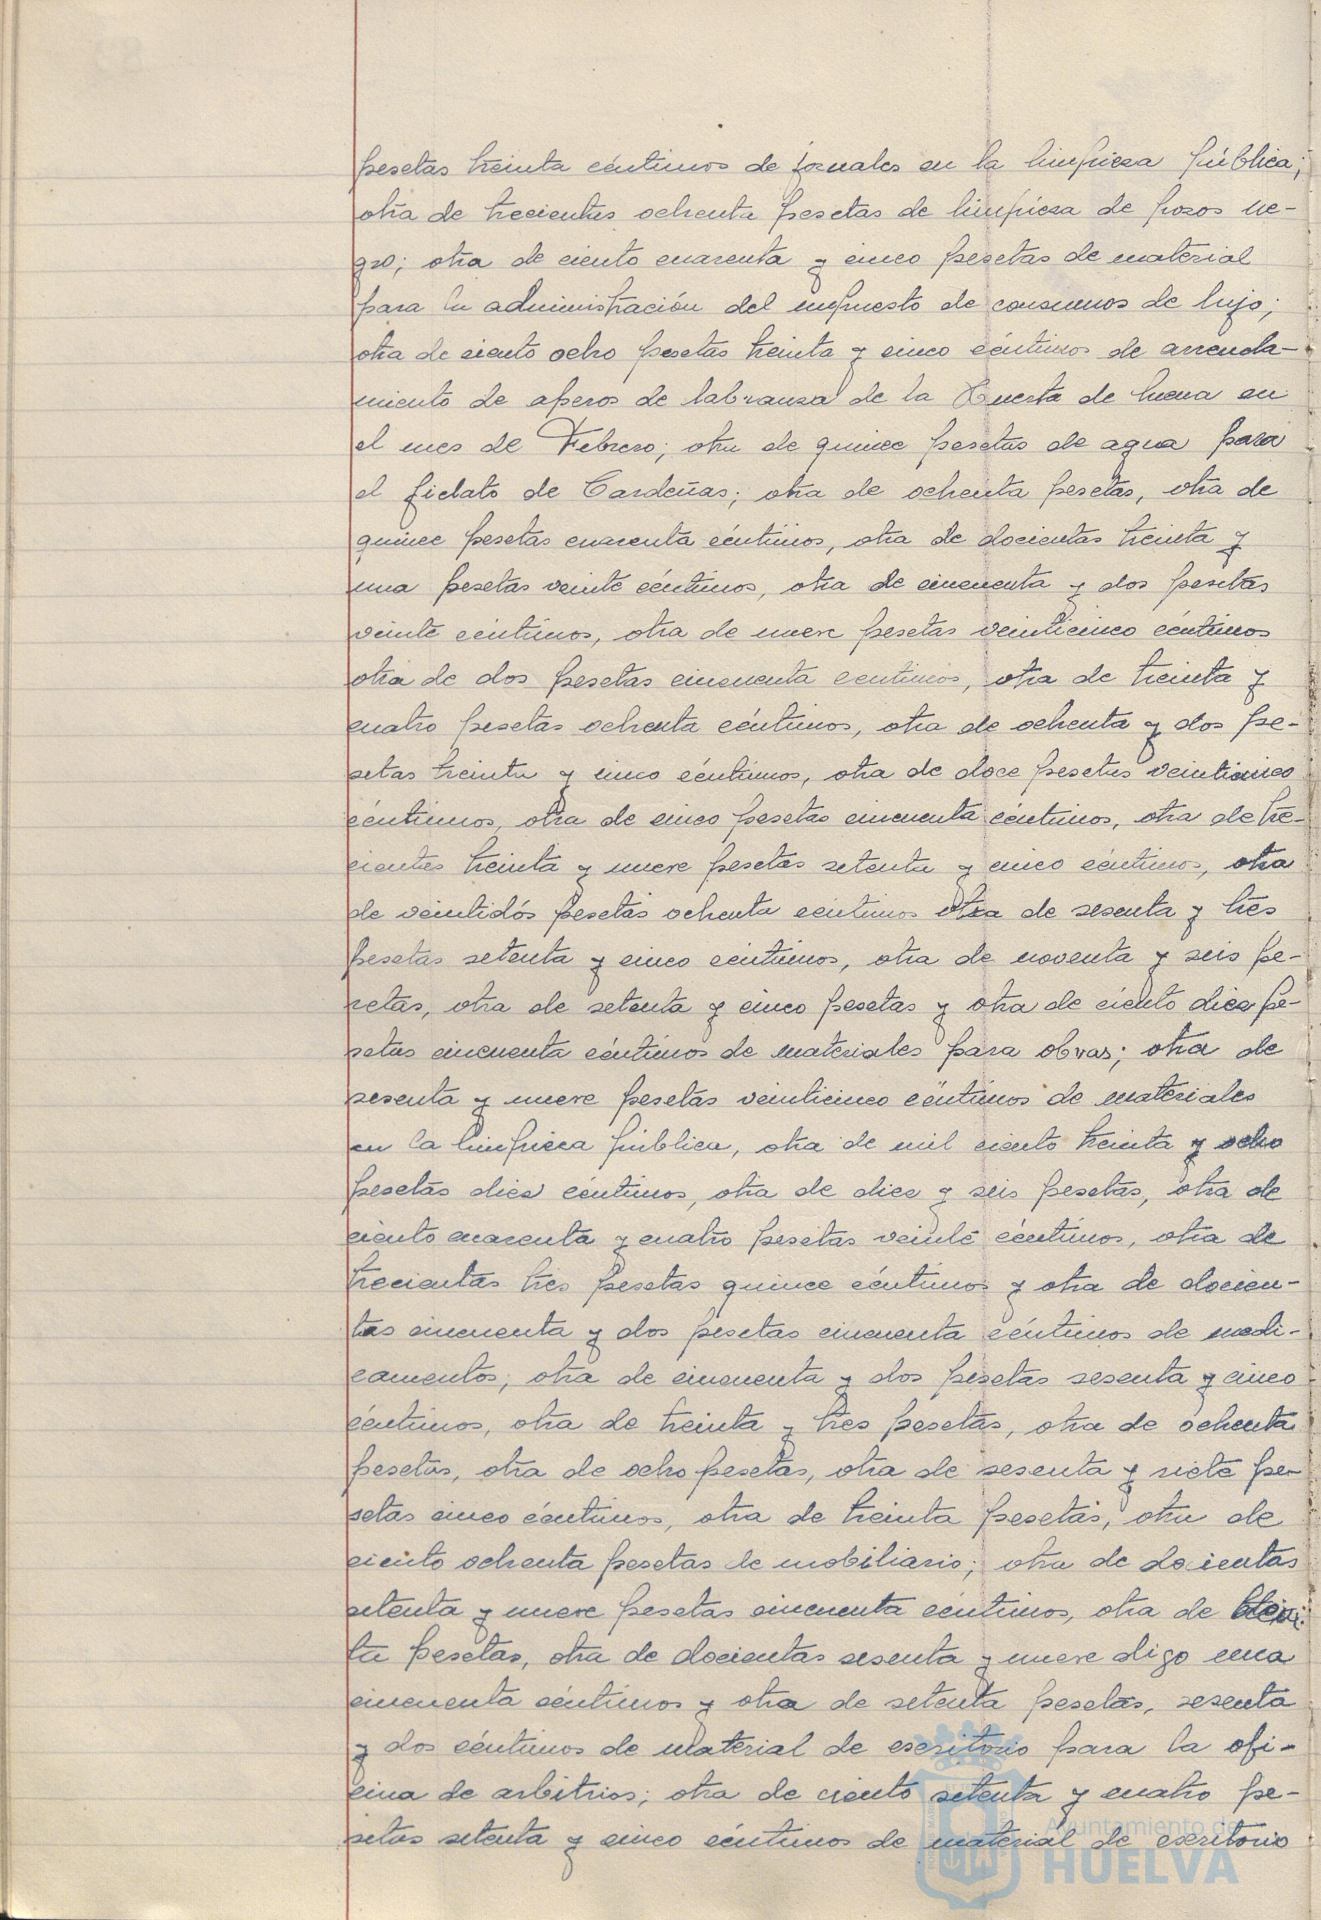 pesetas treinta céntimos de jornales en la limpieza pública;
otra de trecientas ochenta pesetas de limpieza de pozos ne-
gro; otra de ciento cuarenta y cinco pesetas de material
para la administración del impuesto de consumos de lujo;
otra de ciento ocho pesetas treinta y cinco céntimos de arrenda-
miento de aperos de labranza de la Huerta de Mena en
el mes de Febrero; otra de quince pesetas de agua para
el fielato de Cardeñas; otra de ochenta pesetas, otra de
quince pesetas cuarenta céntimos, otra de docientas treinta y
una pesetas veinte céntimos, otra de cincuenta y dos pesetas
veinte céntimos, otra de nueve pesetas veinticinco céntimos
otra de dos pesetas cincuenta centimos, otra de treinta y
cuatro pesetas ochenta céntimos, otra de ochenta y dos pe-
setas treinta y cinco céntimos, otra de doce pesetas veinticinco
céntimos, otra de cinco pesetas cincuenta céntimos, otra de tre-
cientas treinta y nueve pesetas setenta y cinco céntimos, otra
de veintidós pesetas ochenta céntimos otra de sesenta y tres
pesetas setenta y cinco céntimos, otra de noventa y seis pe-
setas, otra de setenta y cinco pesetas y otra de ciento diez pe-
setas cincuenta céntimos de materiales para obras; otra de
sesenta y nueve pesetas veinticinco céntimos de materiales
en la limpieza pública, otra de mil ciento treinta y ocho
pesetas diez céntimos, otra de diez y seis pesetas, otra de
ciento cuarenta y cuatro pesetas veinte céntimos, otra de
trecientas tres pesetas quince céntimos y otra de docien-
tas cincuenta y dos pesetas cincuenta céntimos de medi-
camentos; otra de cincuenta y dos pesetas sesenta y cinco
céntimos, otra de treinta y tres pesetas, otra de ochenta
pesetas, otra de ocho pesetas, otra de sesenta y siete pe-
setas cinco céntimos, otra de treinta pesetas, otra de
ciento ochenta pesetas de mobiliario; otra de docientas
setenta y nueve pesetas cincuenta céntimos, otra de
ta pesetas, otra de docientas sesenta y nueve digo una
cincuenta céntimos y otra de setenta pesetas, sesenta
y dos céntimos de material de escritorio para la ofi-
cina de arbitrios; otra de ciento setenta y cuatro pe-
setas setenta y cinco céntimos de material de escritorio
Ayuntamiento de
HUELVA